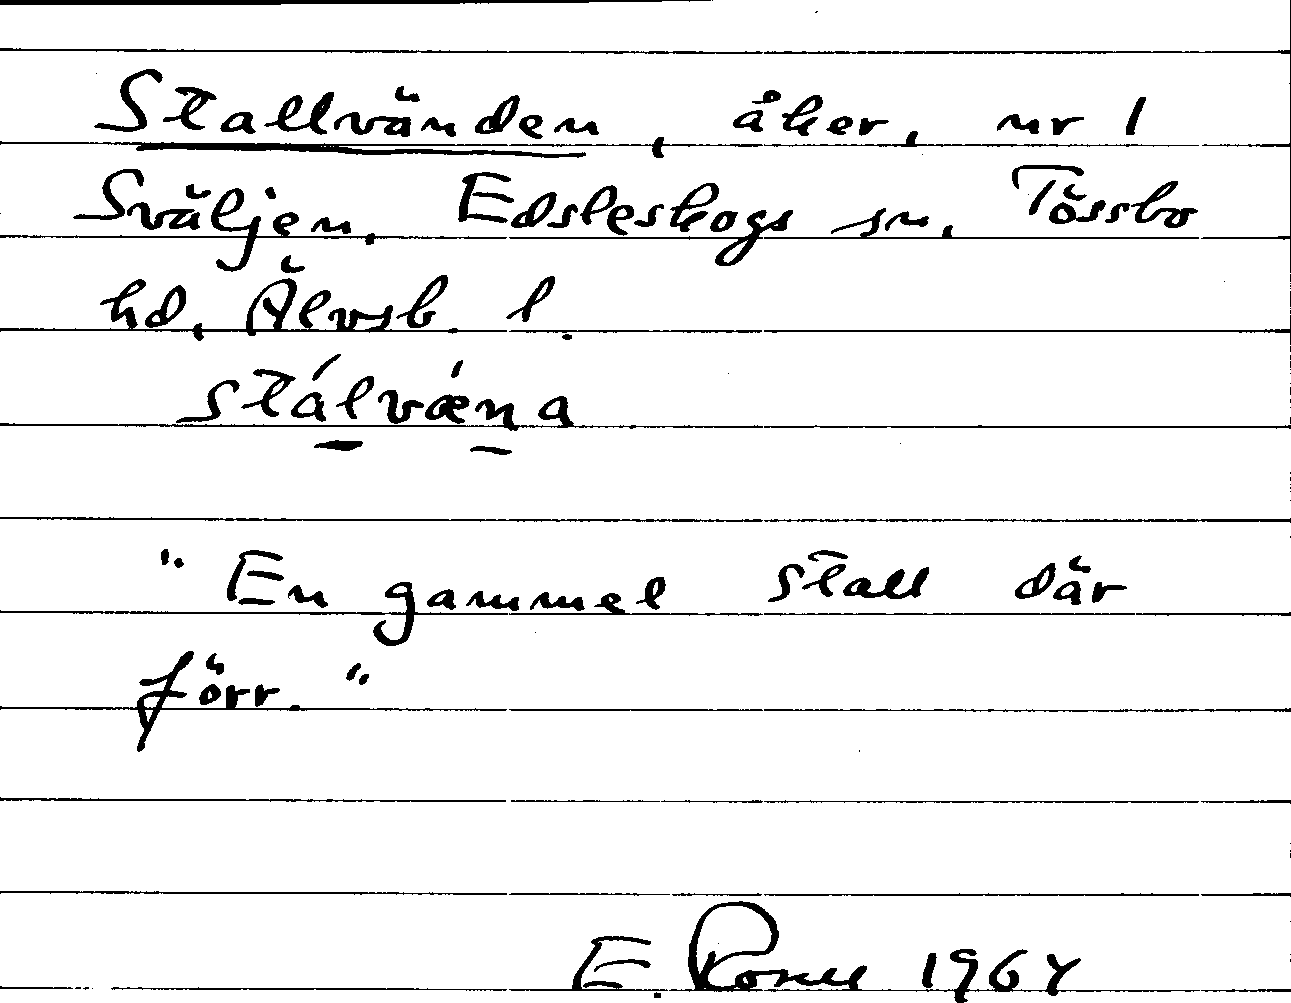 Stallvänden, åker, nr 1
Sväljen, Edsleskogs sn, Tössbo
hd, Älvsb. l.
stálvǽna
"En gammel stall där
förr."
E. 1964